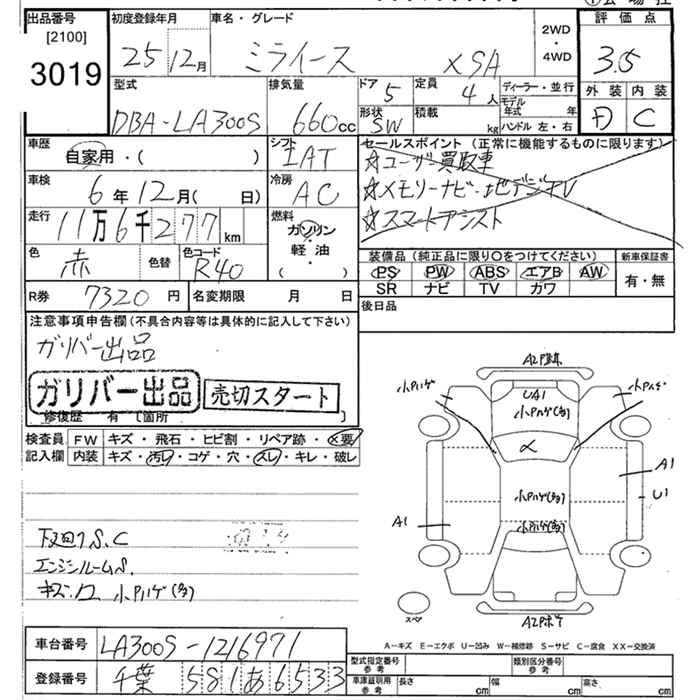 出品番号
[2100]
3019
初度登録年月
25 12月
車名・グレード
ミライース XSA
2WD
・
4WD
評価点
3.5
外装 内装
D C
型式
DBA-LA300S
排気量
660cc
ドア 5
定員 4人
ディーラー・並行
モデル年式 年
ハンドル 左・右
形状 SW
積載 kg
車歴
自家用・( )
シフト
IAT
セールスポイント(正常に機能するものに限ります)
☆ユーザー買取車
☆メモリーナビ・地デジTV
☆スマートアシスト
車検
6年12月( 日)
冷房
AC
走行
11万6千277km
燃料
ガソリン
軽油
・( )
色
赤
色替
色コード
R40
装備品(純正品に限り○をつけてください)
新車保証書
PS PW ABS エアB AW
SR ナビ TV カワ
有・無
R券 7320円
名変期限 月 日
後日品
注意事項申告欄(不具合内容等は具体的に記入して下さい)
ガリバー出品
ガリバー出品
売切スタート
修復歴 有 [箇所 ]
検査員記入欄
FW キズ・飛石・ヒビ割・リペア跡・×要
内装 キズ・汚レ・コゲ・穴・スレ・キレ・破レ
下回りS.C
エンジンルームS.
キズ・凹 小Pハゲ(多)
小Pハゲ
UA1
小Pハゲ(多)
小Pハゲ
×
A1
U1
小Pハゲ(多)
小Pハゲ(多)
A1
スペア
A キズ E エクボ U 凹み W 補修跡 S サビ C 腐食 XX 交換済
車台番号
LA300S-1216971
登録番号
千葉 581あ6533
型式指定番号
参考
類別区分番号
参考
車庫証明用
参考
長さ cm
幅 cm
高さ cm